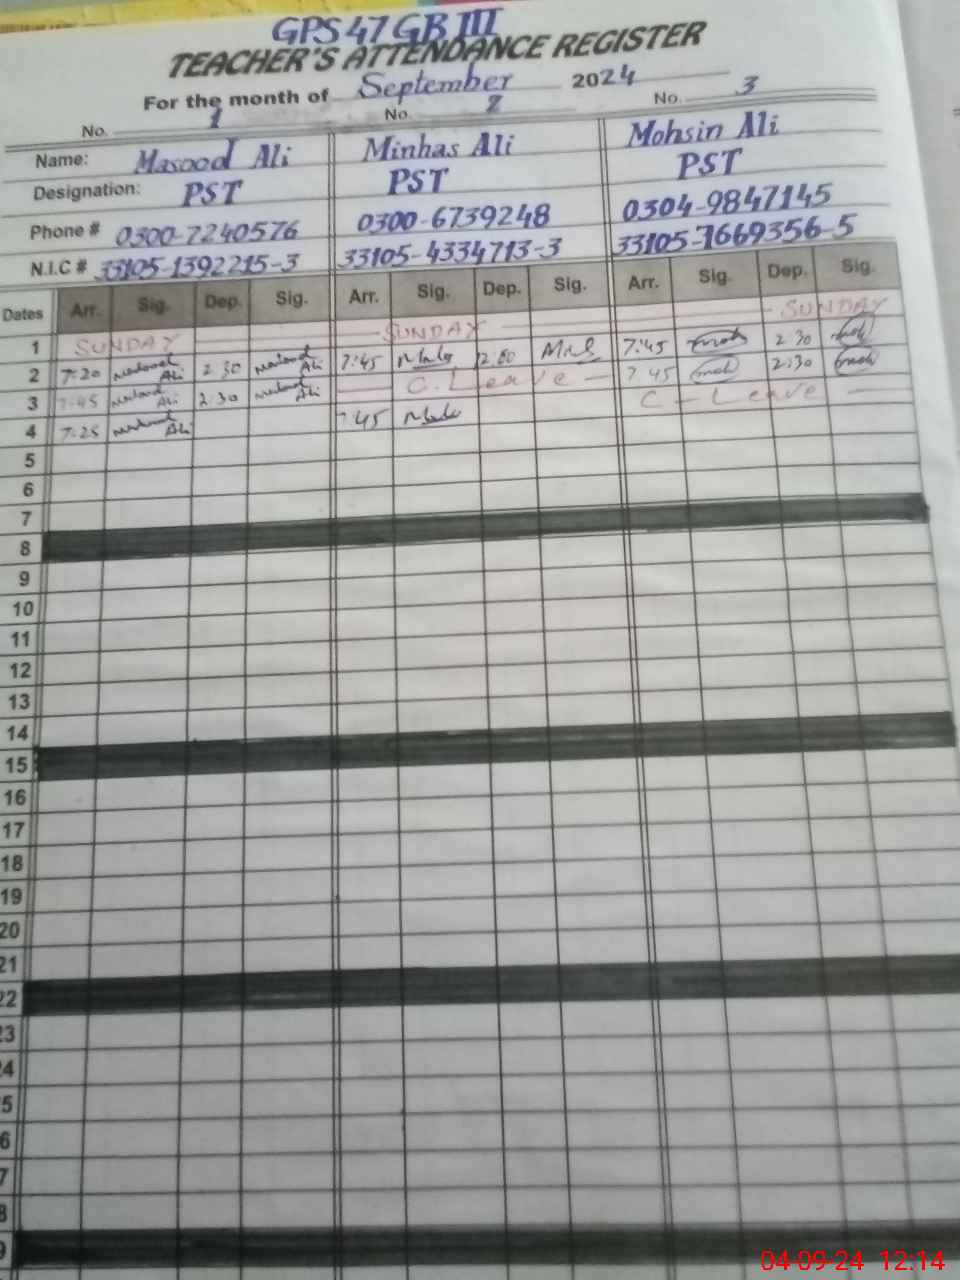 GPS 47 GB III
TEACHER'S ATTENDANCE REGISTER
For the month of September 2024
No. 1 No. 2 No. 3
Name: Masood Ali Minhas Ali Mohsin Ali
Designation: PST PST PST
Phone # 0300-7240576 0300-6739248 0304-9847145
N.I.C # 33105-1392215-3 33105-4334713-3 33105-7669356-5
Dates Arr. Sig. Dep. Sig. Arr. Sig. Dep. Sig. Arr. Sig. Dep. Sig.
1 SUNDAY SUNDAY SUNDAY
2 7:20 Masood Ali 2:30 Masood Ali 7:45 7:45 2:30
3 7:45 Masood Ali 2:30 Masood Ali C. Leave 7:45 2:30
4 7:25 Masood Ali 7:45 C-Leave
5
6
7
8
9
10
11
12
13
14
15
16
17
18
19
20
21
22
23
24
04-09-24 12:14